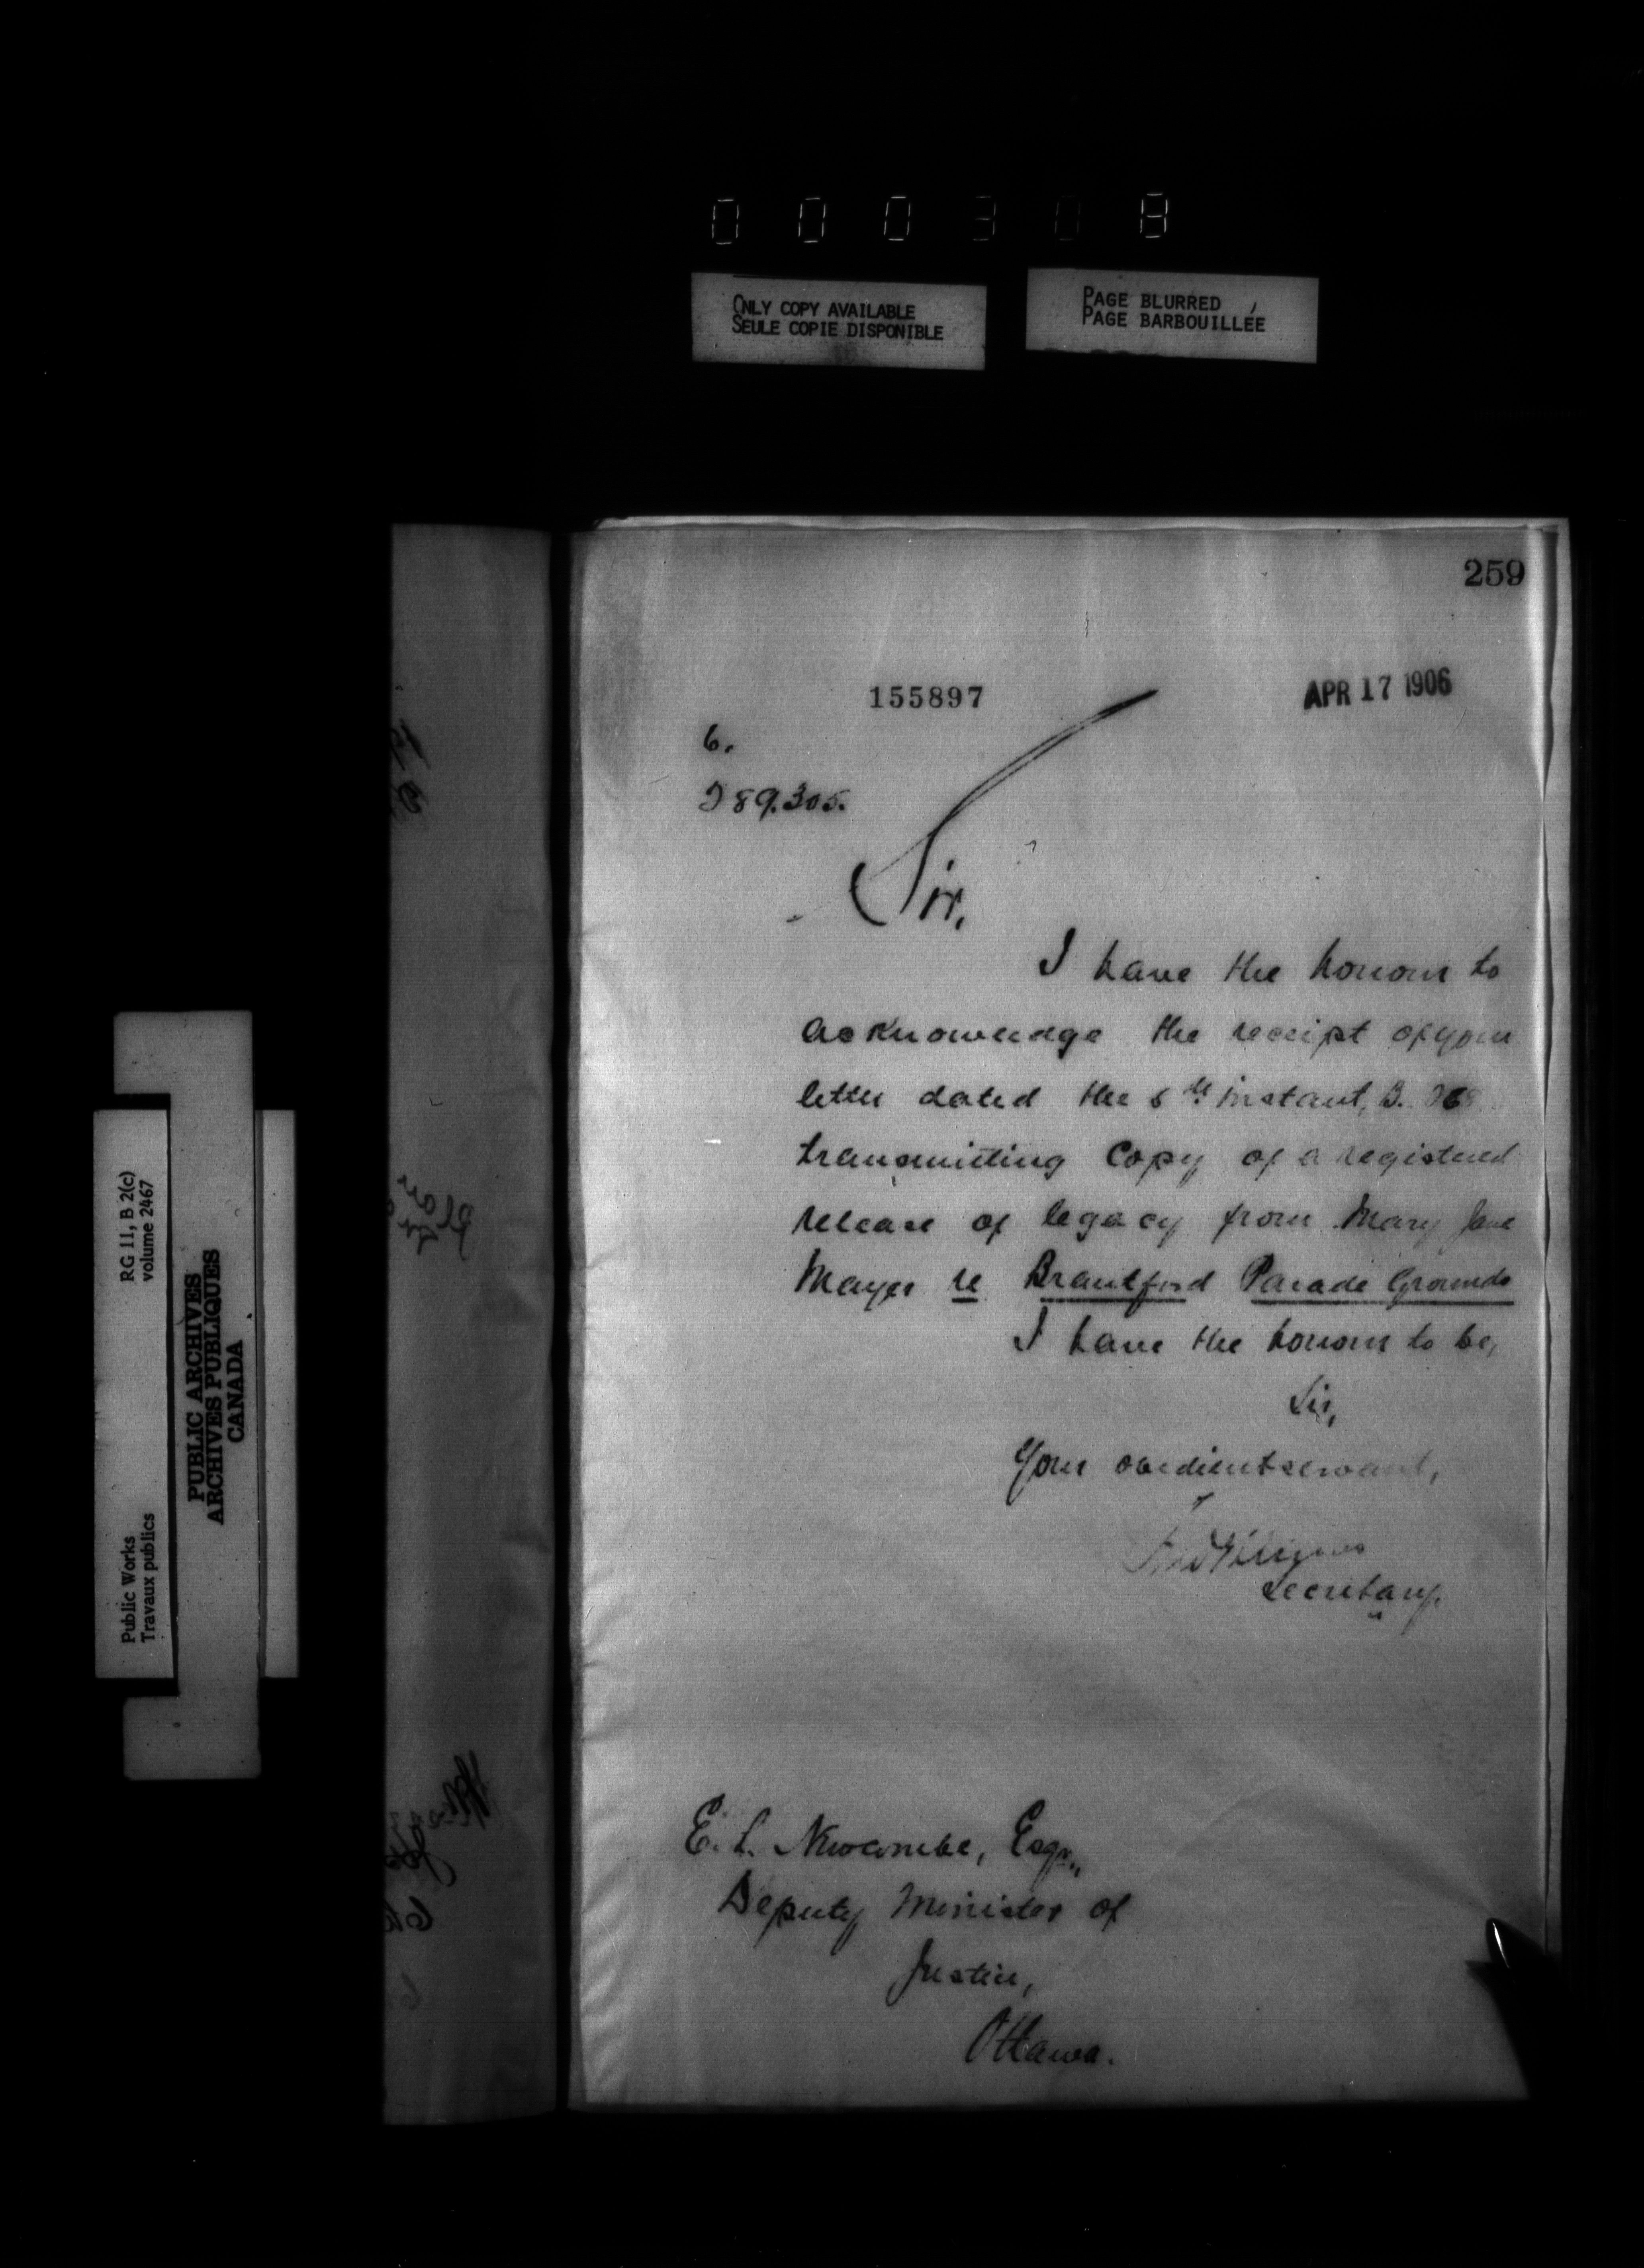 000308
ONLY COPY AVAILABLE
SEULE COPIE DISPONIBLE
PAGE BLURRED
PAGE BARBOUILLÉE
259
155897
APR 17 1906
6.
289.305.
Sir,
I have the honour to
acknowledge the receipt of your
letter dated the 6th instant, B.
transmitting Copy of a registered
release of legacy from Mary Jane
Mayer re Brantford Parade Grounds
I have the honour to be,
Sir,
Your obedient servant,
Secretary.
E. L. Newcombe, Esqr.,
Deputy Minister of
Justice,
Ottawa.
RG 11, B 2(c)
volume 2467
Public Works
Travaux publics
PUBLIC ARCHIVES
ARCHIVES PUBLIQUES
CANADA